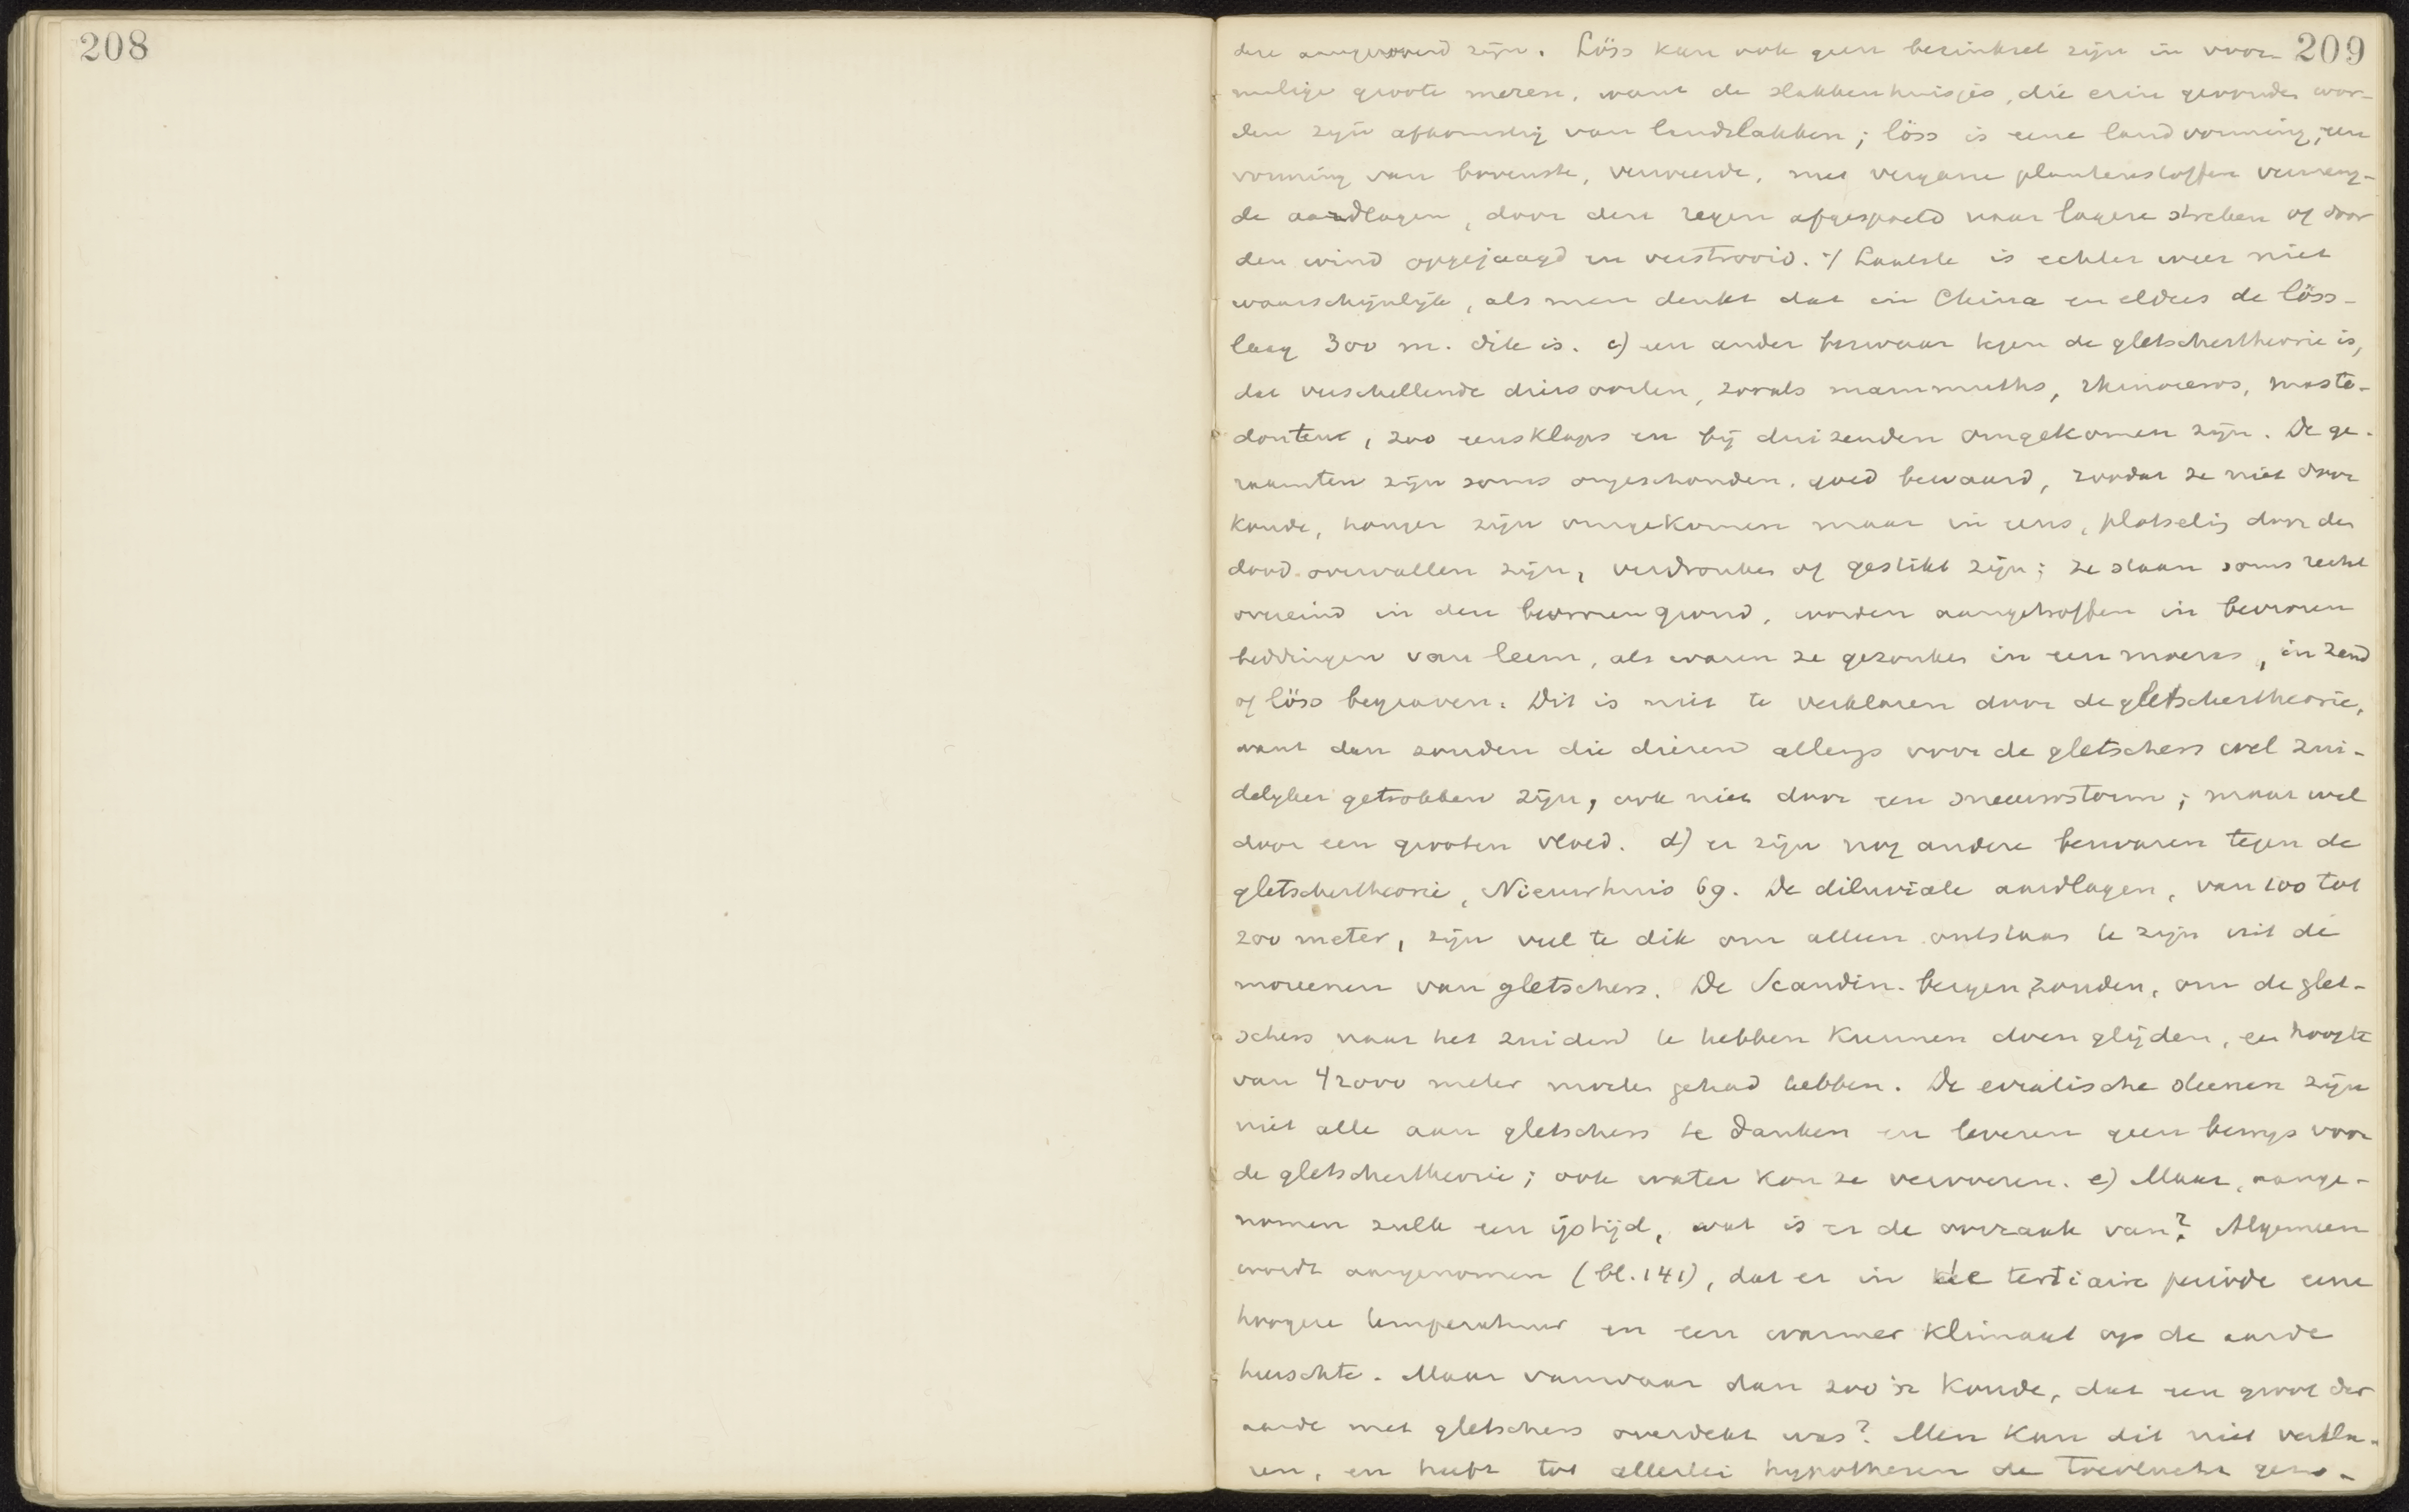 208
209
dere aangevoerd zijn. Löss kan ook geen bezinksel zijn in voor-
malige groote meren, want de slakkenhuisjes, die erin gevonden wor-
den zijn afkomstig van landslakken; löss is eene landvorming, een
vorming van bovenste, verweerde, met vergane plantenstoffen vermeng-
de aardlagen, door den regen afgespoeld naar lagere streken of door
den wind opgejaagd en verstrooid. 't Laatste is echter weer niet
waarschijnlijk, als men denkt dat in China en elders de löss-
laag 300 m. dik is. c) een ander bezwaar tegen de gletschertheorie is,
dat verschellende diersoorten, zooals mammuths, rhinoceros, masto-
donten, zoo eensklaps en bij duizenden omgekomen zijn. De ge-
raamten zijn soms ongeschonden, goed bewaard, zoodat ze niet door
koude, honger zijn omgekomen maar in eens, plotselig door den
dood overvallen zijn, verdronken of gestikt zijn; ze staan soms recht
overeind in den bevroren grond, worden aangetroffen in bevroren
beddingen van leem, als waren ze gezonken in een moeras, in zand
of löss begraven. Dit is niet te verklaren door de gletschertheorie,
want dan zouden die dieren allengs voor de gletschers wel zui-
delijker getrokken zijn, ook niet door een sneeuwstorm; maar wel
door een grooten vloed. d) er zijn nog andere bezwaren tegen de
gletschertheorie, Nieuwhuis 69. De diluviale aardlagen, van 100 tot
200 meter, zijn veel te dik om alleen ontstaan te zijn uit de
moreenen van gletschers. De Scandin. bergen zouden, om de glet-
schers naar het zuiden te hebben kunnen doen glijden, een hoogte
van 42000 meter moeten gehad hebben. De erratische steenen zijn
niet alle aan gletschers te danken en leveren geen bewijs voor
de gletschertheorie; ook water kon ze vervoeren. e) Maar, aange-
nomen zulk een ijstijd, wat is er de oorzaak van? Algemeen
wordt aangenomen (bl. 141), dat er in de tertiaire periode eene
hoogere temperatuur en een warmer klimaat op de aarde
heerschte. Maar vanwaar dan zoo'n koude, dat een groot der
aarde met gletschers overdekt was? Men kan dit niet verkla-
ren, en heeft tot allerlei hypothesen de toevlucht geno-